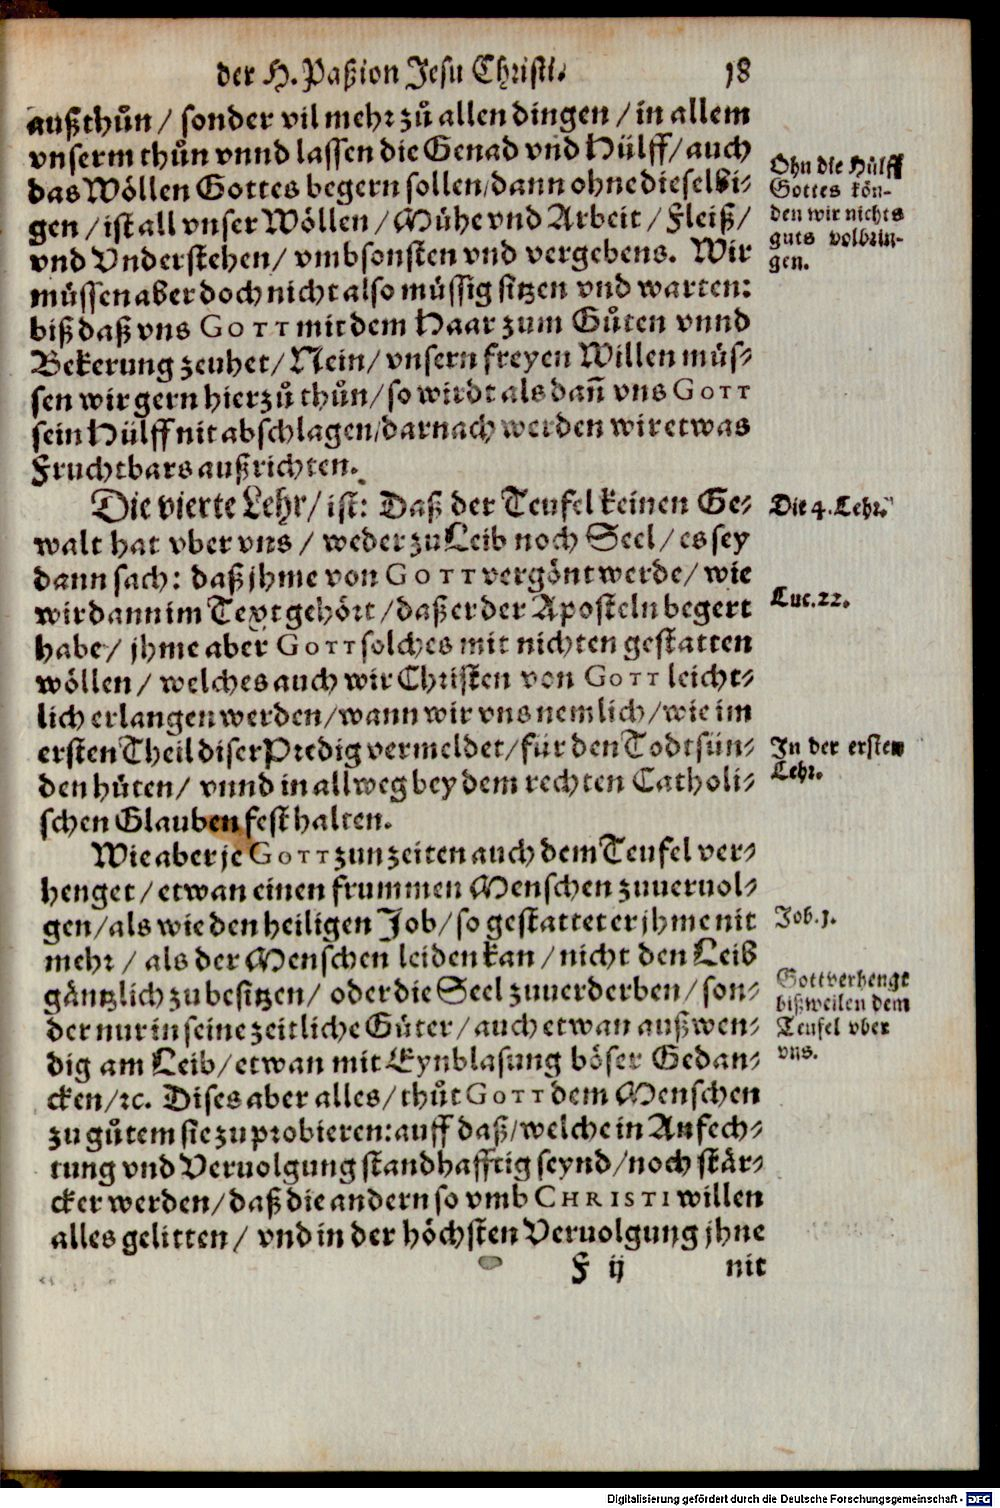 der H. Paßion Jesu Christi. 18
außthůn / sonder vil mehr zů allen dingen / in allem
vnserm thůn vnnd lassen die Genad vnd Hülff / auch
das Wöllen Gottes begern sollen / dann ohne dieselbi-
gen / ist all vnser Wöllen / Mühe vnd Arbeit / Fleiß /
vnd Vnderstehen / vmbsonsten vnd vergebens. Wir
müssen aber doch nicht also müssig sitzen vnd warten:
biß daß vns GOTT mit dem Haar zum Gůten vnnd
Bekerung zeuhet / Nein / vnsern freyen Willen müs-
sen wir gern hierzů thůn / so wirdt als dañ vns GOTT
sein Hülff nit abschlagen / darnach werden wir etwas
Fruchtbars außrichten.
Ohn die Hülff
Gottes kön-
den wir nichts
guts volbrin-
gen.
Die vierte Lehr / ist: Daß der Teufel keinen Ge-
walt hat vber vns / weder zu Leib noch Seel / es sey
dann sach: daß jhme von GOTT vergönt werde / wie
wir dann im Text gehört / daß er der Aposteln begert
habe / jhme aber GOTT solches mit nichten gestatten
wöllen / welches auch wir Christen von GOTT leicht-
lich erlangen werden / wann wir vns nemlich / wie im
ersten Theil diser Predig vermeldet / für den Todtsün-
den hüten / vnnd in allweg bey dem rechten Catholi-
schen Glauben fest halten.
Die 4. Lehr.
Luc. 22.
In der ersten
Lehr.
Wie aber je GOTT zun zeiten auch dem Teufel ver-
henget / etwan einen frummen Menschen zuueruol-
gen / als wie den heiligen Job / so gestattet er jhme nit
mehr / als der Menschen leiden kan / nicht den Leib
gäntzlich zu besitzen / oder die Seel zuuerderben / son-
der nur in seine zeitliche Güter / auch etwan außwen-
dig am Leib / etwan mit Eynblasung böser Gedan-
cken / ꝛc. Dises aber alles / thůt GOTT dem Menschen
zu gůtem sie zu probieren: auff daß / welche in Anfech-
tung vnd Veruolgung standhafftig seynd / noch stär-
cker werden / daß die andern so vmb CHRISTI willen
alles gelitten / vnd in der höchsten Veruolgung jhne
Job. 1.
Gott verhengt
bißweilen dem
Teufel vber
vns.
F ij nit
Digitalisierung gefördert durch die Deutsche Forschungsgemeinschaft - DFG